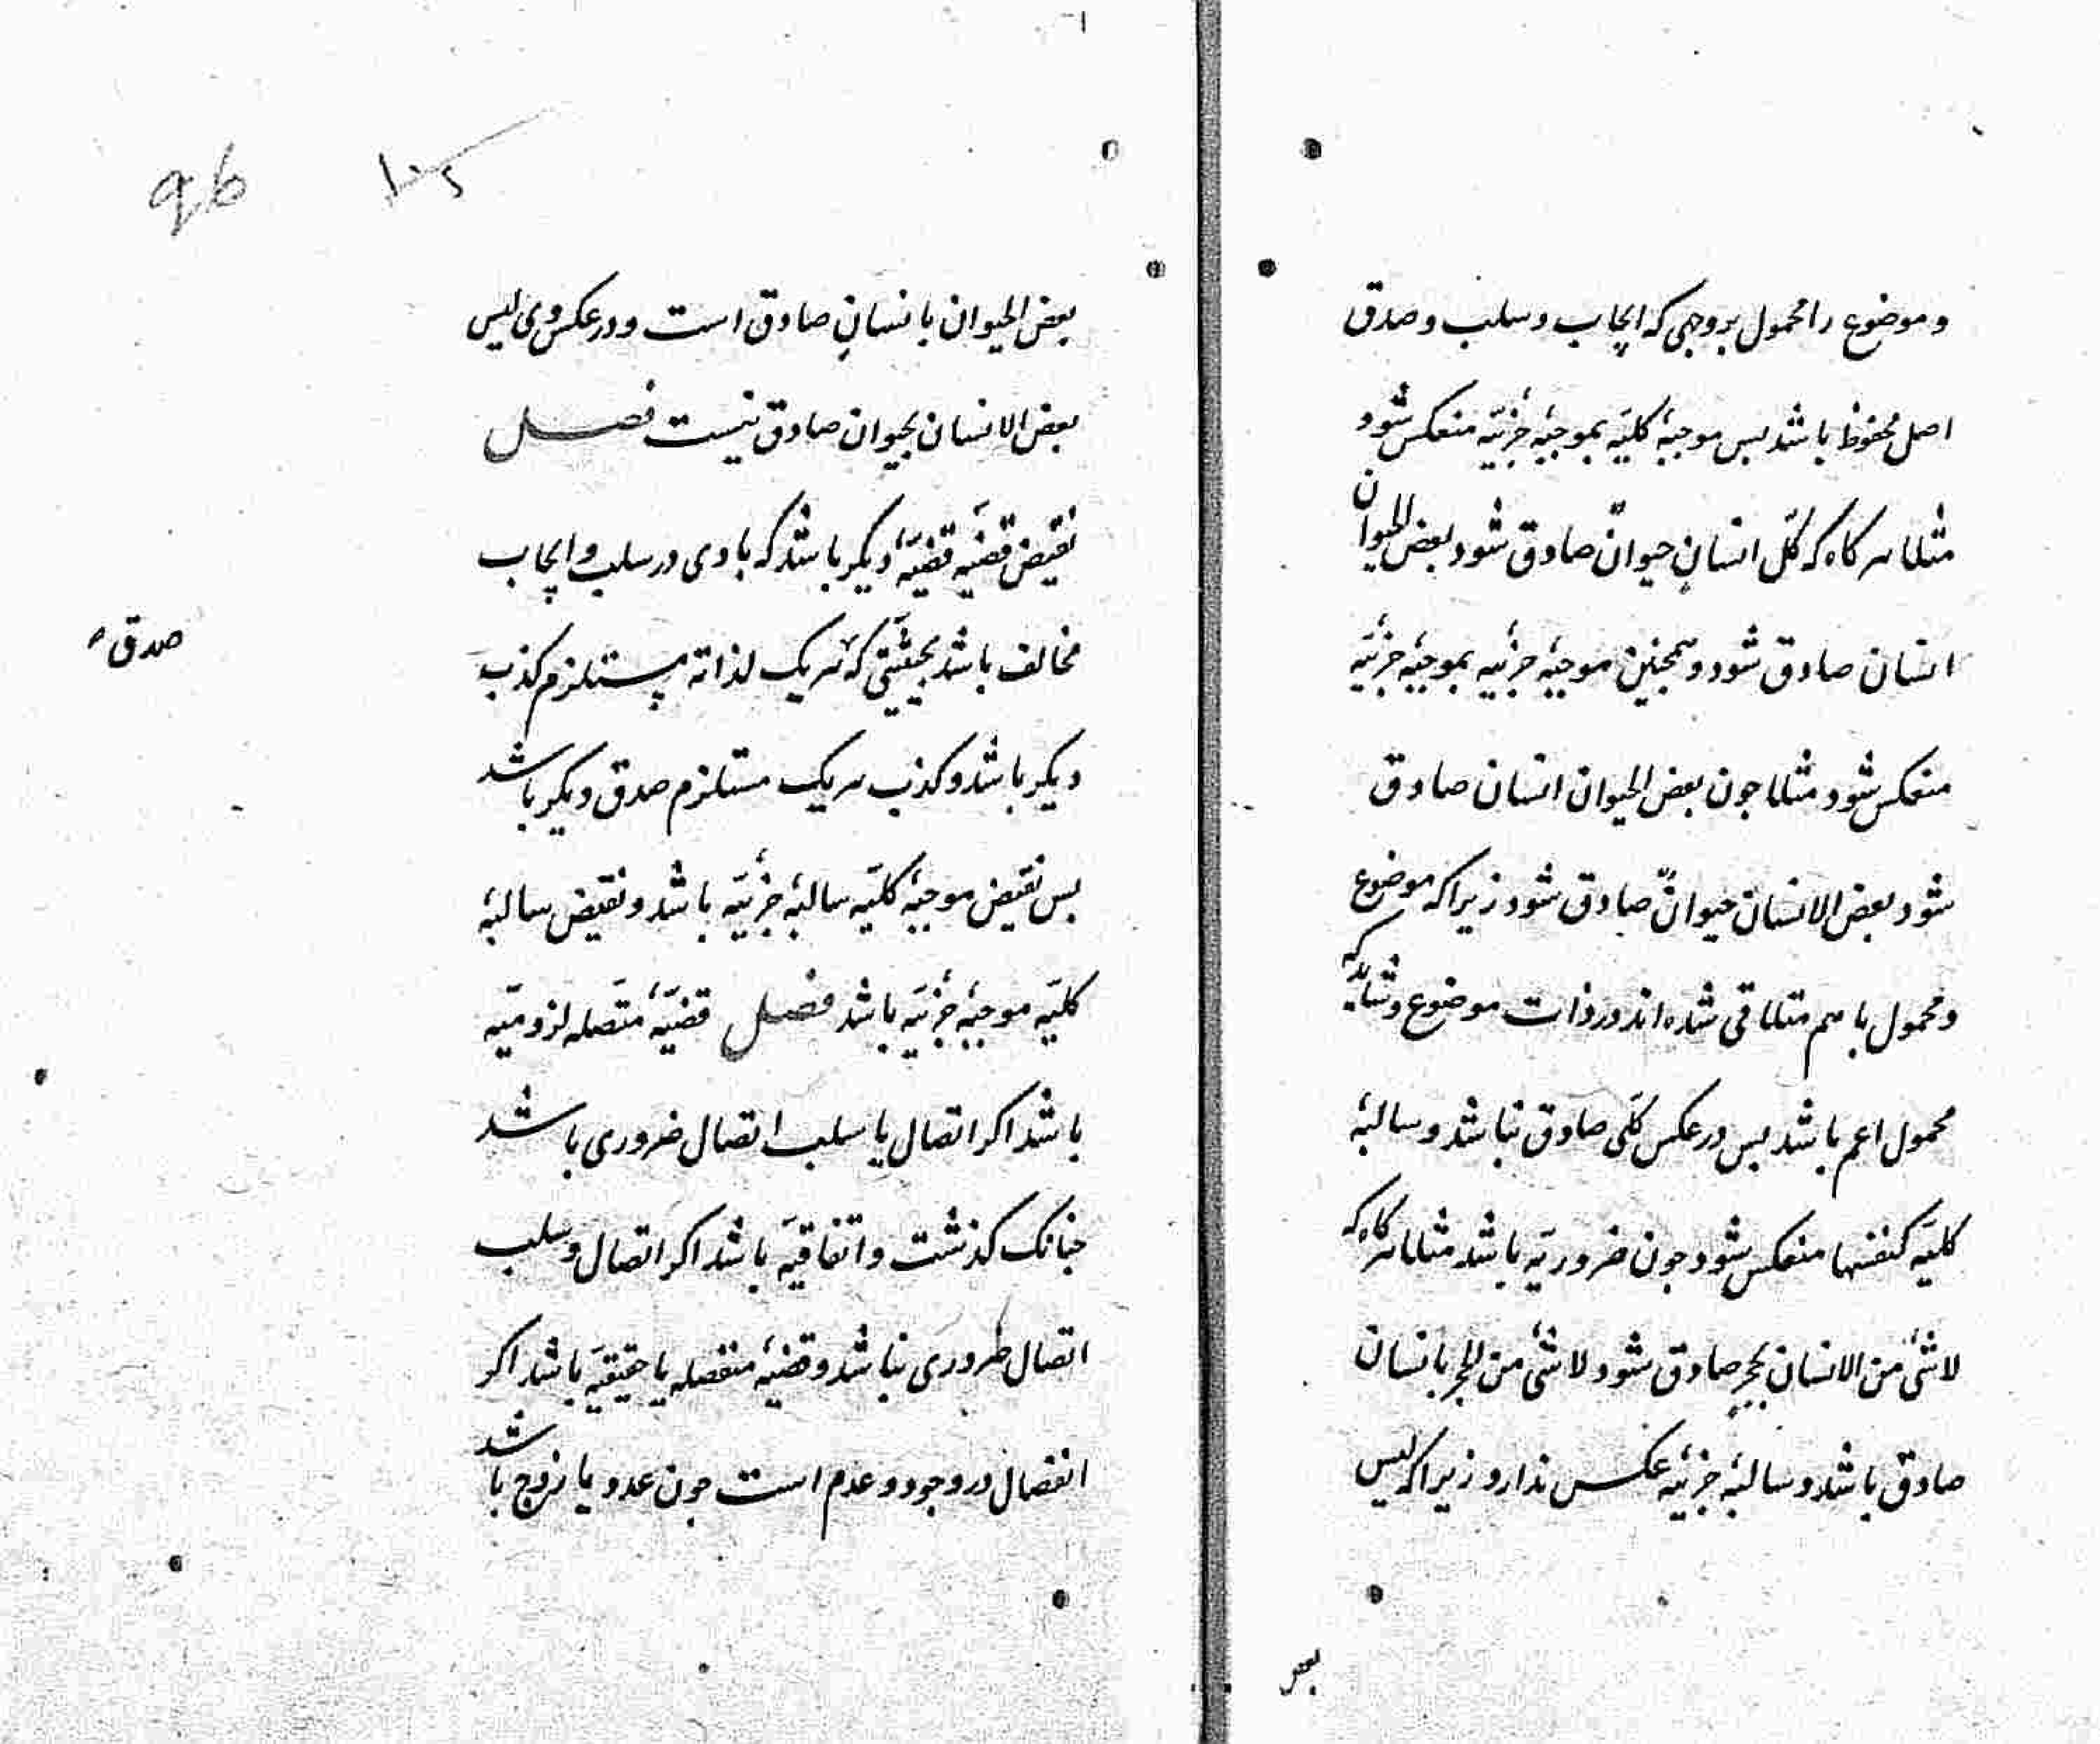 و موضوع را محمول بروجهی که ایجاب و سلب و صدق
اصل محفوظ باشد بس موجبهٔ کلیّه بموجبهٔ جزئیّه منعکس شود
مثلا هرکاه که کلّ انسانٍ حیوانٌ صادق شود بعض الحیوان
انسان صادق شود و همجنین موجبهٔ جزئیه بموجبهٔ جزئیّه
منعکس شود مثلا جون بعض الحیوان انسان صادق
شود بعض الانسان حیوانٌ صادق شود زیرا که موضوع
و محمول با هم متلاقی شده اند در ذات موضوع و شاید که
محمول اعم باشد بس در عکس کلّی صادق نباشد و سالبهٔ
کلیّه کنفسها منعکس شود جون ضروریّه باشد مثلا هرکاه که
لاشئ من الانسان بحجرٍ صادق شود لاشئ من الحجر بانسان
صادق باشد و سالبهٔ جزئیه عکس ندارد زیرا که لیس
بعض
۹۵
۱۰۵
بعض الحیوان بانسانٍ صادق است و در عکس وی لیس
بعض الانسان بحیوان صادق نیست فصل
نقیض قضیّه قضیّهٔ دیکر باشد که با وی در سلب و ایجاب
مخالف باشد بحیثیتی که هریک لذاته مستلزم کذب
صدق
دیکر باشد و کذب هریک مستلزم صدق دیکر باشد
بس نقیض موجبهٔ کلیّه سالبهٔ جزئیّه باشد و نقیض سالبهٔ
کلیّه موجبهٔ جزئیّه باشد فصل قضیّهٔ متّصله لزومیّه
باشد اکر اتصال یا سلب اتصال ضروری باشد
جنانک کذشت و اتفاقیّه باشد اکر اتصال و سلب
اتصال ضروری نباشد و قضیهٔ منفصله یا حقیقیّه باشد اکر
انفصال در وجود و عدم است جون عدد یا زوج باشد